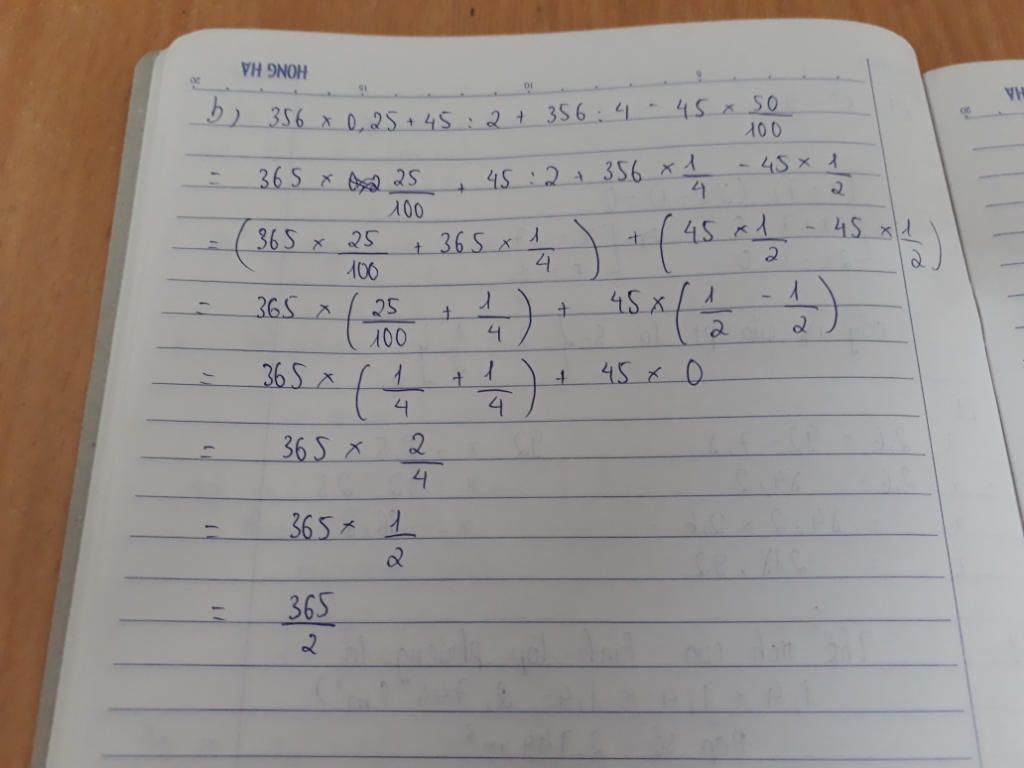 HONG HA
b) 356 × 0,25 + 45 : 2 + 356 : 4 - 45 × 50/100
= 365 × 25/100 + 45 : 2 + 356 × 1/4 - 45 × 1/2
= (365 × 25/100 + 365 × 1/4) + (45 × 1/2 - 45 × 1/2)
= 365 × (25/100 + 1/4) + 45 × (1/2 - 1/2)
= 365 × (1/4 + 1/4) + 45 × 0
= 365 × 2/4
= 365 × 1/2
= 365/2